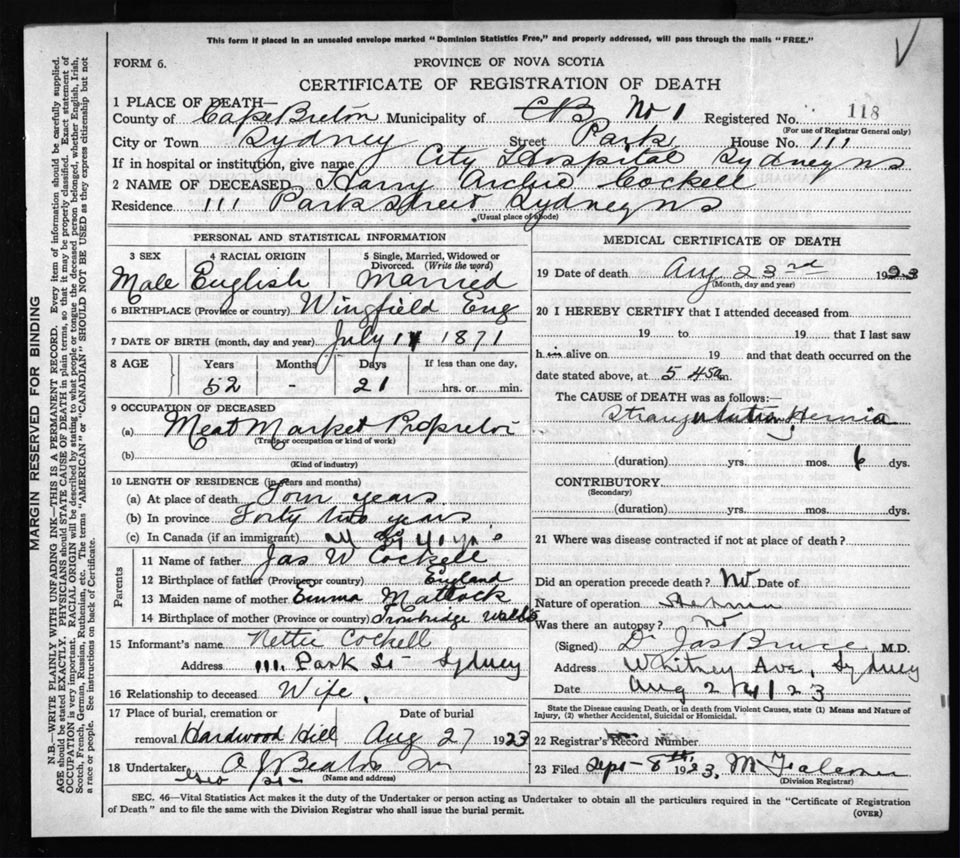 This form if placed in an unsealed envelope marked "Dominion Statistics Free," and properly addressed, will pass through the mails "FREE."
FORM 6.
PROVINCE OF NOVA SCOTIA
CERTIFICATE OF REGISTRATION OF DEATH
1 PLACE OF DEATH—
County of Cape Breton Municipality of CB No 1 Registered No. 118
(For use of Registrar General only)
City or Town Sydney Street Park House No. 111
If in hospital or institution, give name City Hospital Sydney ns
2 NAME OF DECEASED Harry Archie Cockell
Residence 111 Park Street Sydney ns
(Usual place of abode)
PERSONAL AND STATISTICAL INFORMATION
3 SEX
4 RACIAL ORIGIN
5 Single, Married, Widowed or Divorced. (Write the word)
Male English Married
6 BIRTHPLACE (Province or country) Wingfield Eng
7 DATE OF BIRTH (month, day and year) July 1 1871
8 AGE
Years Months Days If less than one day,
52 - 21 hrs. or min.
9 OCCUPATION OF DECEASED
(a) Meat Market Proprietor
(Trade or occupation or kind of work)
(b)
(Kind of industry)
10 LENGTH OF RESIDENCE (in years and months)
(a) At place of death Four years
(b) In province Forty two years
(c) In Canada (if an immigrant)
Parents
11 Name of father Jas W Cockell
12 Birthplace of father (Province or country) England
13 Maiden name of mother Emma Mattock
14 Birthplace of mother (Province or country) Trowbridge
15 Informant's name Nettie Cockell
Address 111 Park St Sydney
16 Relationship to deceased Wife
17 Place of burial, cremation or removal Hardwood Hill
Date of burial
Aug 27 1923
18 Undertaker A J Beaton
(Name and address)
MEDICAL CERTIFICATE OF DEATH
19 Date of death Aug 23rd 1923
(Month, day and year)
20 I HEREBY CERTIFY that I attended deceased from
19 to 19 that I last saw
him alive on 19 and that death occurred on the
date stated above, at 5 45a m.
The CAUSE of DEATH was as follows:—
Hernia
(duration) yrs. mos. 6 dys.
CONTRIBUTORY
(Secondary)
(duration) yrs. mos. dys.
21 Where was disease contracted if not at place of death?
Did an operation precede death? No Date of
Nature of operation
Was there an autopsy? No
(Signed) Dr Jas Bruce M.D.
Address Whitney Ave, Sydney
Date Aug 24 / 23
State the Disease causing Death, or in death from Violent Causes, state (1) Means and Nature of Injury, (2) whether Accidental, Suicidal or Homicidal.
22 Registrar's Record Number
23 Filed Sept 8th, 1923.
(Division Registrar)
SEC. 46—Vital Statistics Act makes it the duty of the Undertaker or person acting as Undertaker to obtain all the particulars required in the "Certificate of Registration
of Death" and to file the same with the Division Registrar who shall issue the burial permit.
(OVER)
MARGIN RESERVED FOR BINDING
N.B.—WRITE PLAINLY WITH UNFADING INK—THIS IS A PERMANENT RECORD. Every item of information should be carefully supplied.
AGE should be stated EXACTLY. PHYSICIANS should STATE CAUSE OF DEATH in plain terms, so that it may be properly classified. Exact statement of
OCCUPATION is very important. RACIAL ORIGIN will be described by stating to what people or tongue the deceased person belonged, whether English, Irish,
Scotch, French, German, Russian, Ruthenian, etc. The terms "AMERICAN" or "CANADIAN" SHOULD NOT BE USED as they express citizenship but not
a race or people. See instructions on back of Certificate.